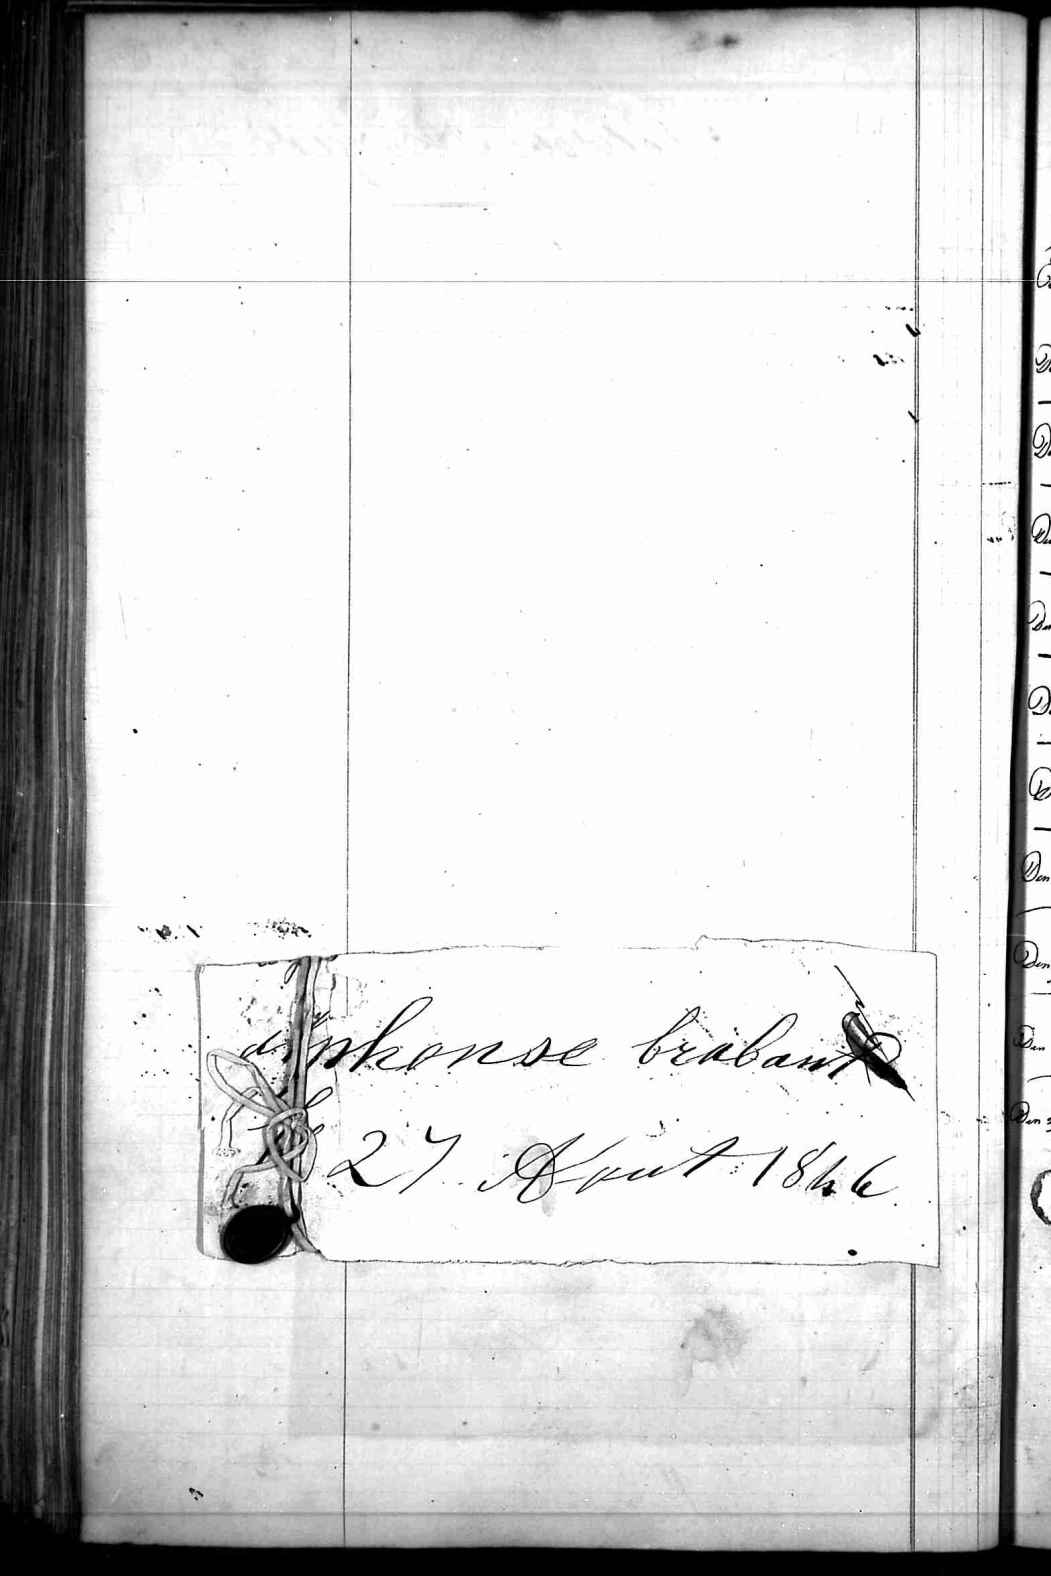 alphonse brabant
le 27 Aout 1846